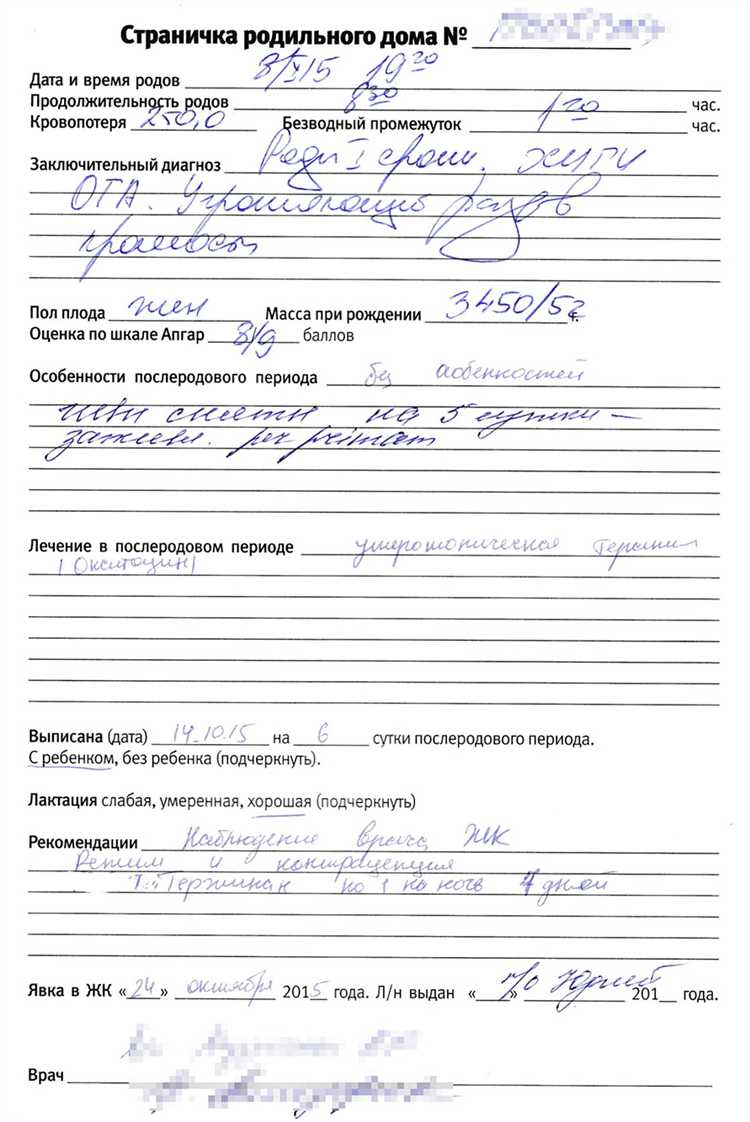 Страничка родильного дома №
Дата и время родов 8/X/15 19 20
Продолжительность родов 8 30 час.
Кровопотеря 250,0 Безводный промежуток 1 20 час.
Заключительный диагноз Роды I срочн.
ОГА. Угрожающий разрыв
промежности
Пол плода жен Масса при рождении 3450/52 г.
Оценка по шкале Апгар 8/9 баллов
Особенности послеродового периода без особенностей
Швы сняты на 5 сутки —
зажив. per primam
Лечение в послеродовом периоде утеротоническая терапия
(Окситоцин)
Выписана (дата) 14.10.15 на 6 сутки послеродового периода.
С ребенком, без ребенка (подчеркнуть).
Лактация слабая, умеренная, хорошая (подчеркнуть)
Рекомендации Наблюдение врача ЖК
Режим и контрацепция
Тержинан по 1 на ночь 7 дней
Явка в ЖК «24» октября 2015 года. Л/н выдан « » 201 года.
Врач